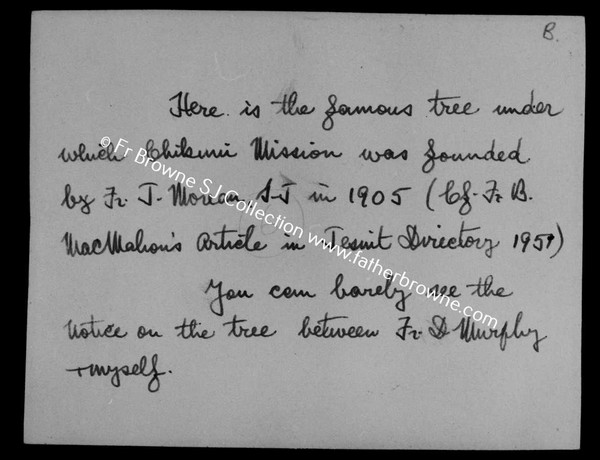 B.
Here is the famous tree under
which Chikuni Mission was founded
by Fr J. Moreau, S.J in 1905 (Cf. Fr B.
MacMahon's Article in Jesuit Directory 1959)
You can barely see the
notice on the tree between Fr D Murphy
+ myself.
© Fr Browne S.J. Collection www.fatherbrowne.com